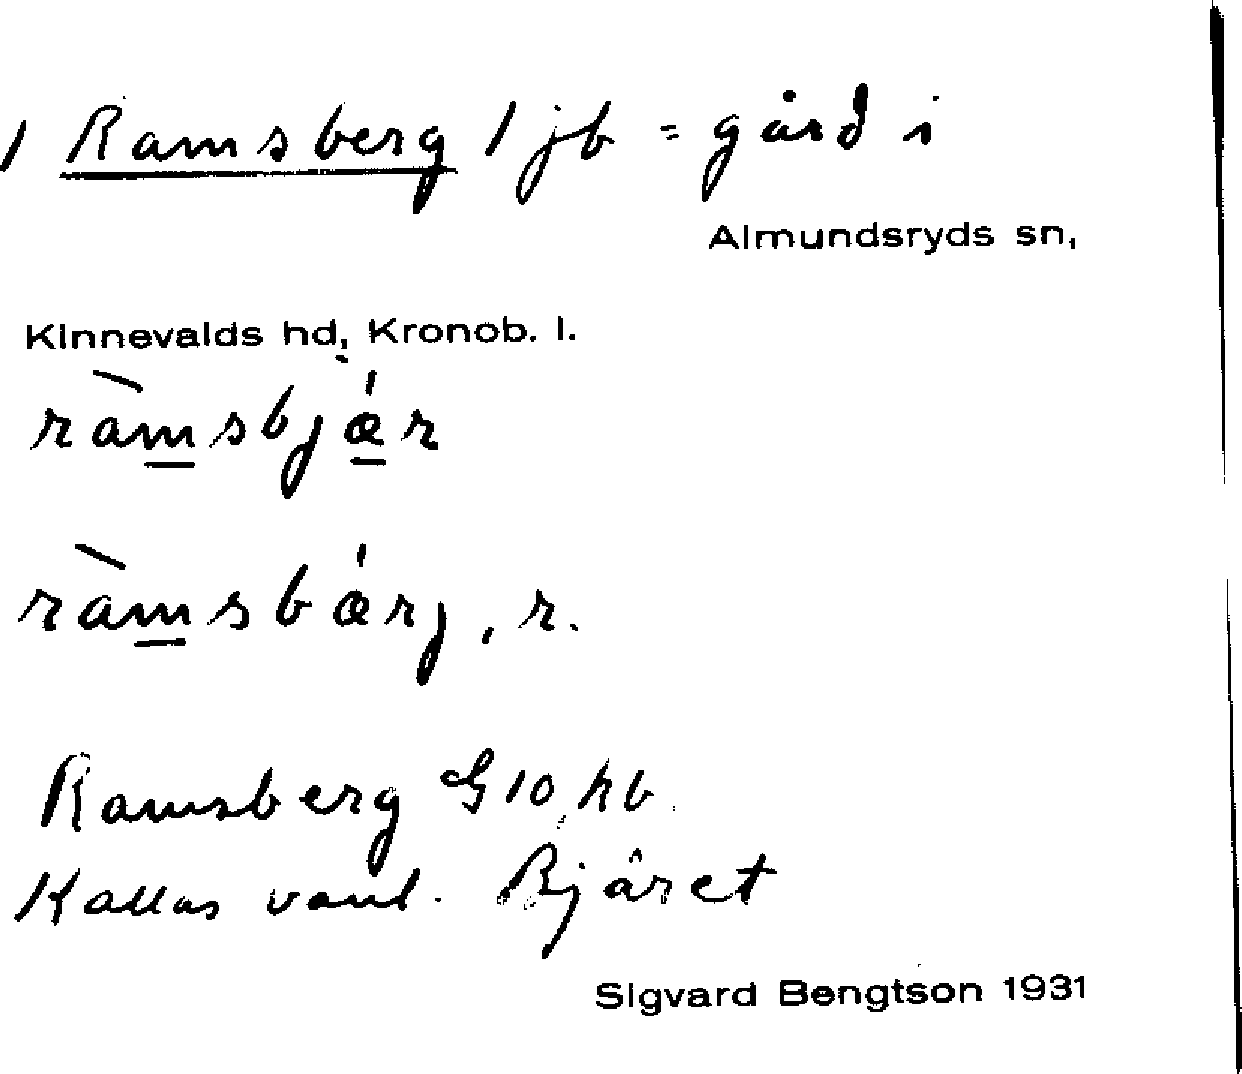 1 Ramsberg 1 jb = gård i
Almundsryds sn,
Kinnevalds hd, Kronob. l.
ràmsbjǽr
ràmsbǽrj, r.
Ramsberg G10 hb.
Kallas vanl. Bjäret
Sigvard Bengtson 1931